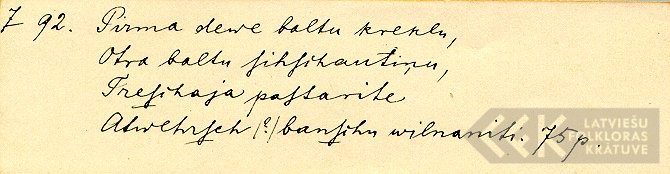 7 92. Pirma dewe baltu kreklu,
Otra baltu sihschautiņu,
Treschaja pastarite
Atwehrsch (?) banschu wilnaniti. 75 p.
LATVIEŠU
FOLKLORAS
KRĀTUVE